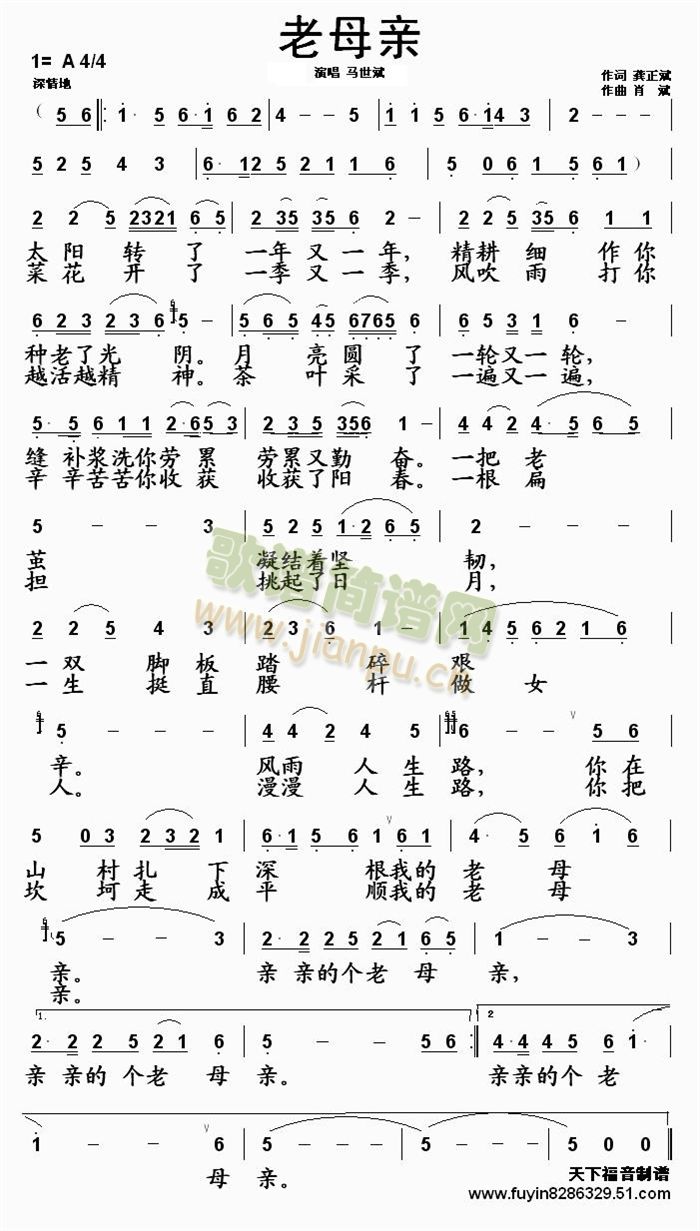 老母亲
1= A 4/4
演唱 马世斌
深情地
作词 龚正斌
作曲 肖 斌
( 5 6 ‖: 1· 5 6·1 6 2 | 4 - - 5 | 1·1 5 6·1 4 3 | 2 - - -
5 2 5 4 3 | 6· 1 2 5 2 1 1 6 | 5 0 6 1 5 6 1 )
2 2 5 2321 6 5 | 2 35 35 6 2 - | 2 2 5 35 6 1 1
太阳 转 了 一年又一年, 精耕 细 作你
菜花 开 了 一季又一季, 风吹 雨 打你
6 2 3 2 3 6 5 - | 5 6 5 45 6765 6 | 6 5 3 1 6 -
种老了光 阴。月 亮圆 了 一轮又一轮,
越活越精 神。茶 叶采 了 一遍又一遍,
5· 5 6 1 1 2·6 5 3 | 2 2 3 356 1 - | 4 4 2 4· 5 6 5
缝 补浆洗你劳 累 劳累又勤 奋。一把 老
辛 辛苦苦你收 获 收获了阳 春。一根 扁
5 - - 3 | 5 2 5 1·2 6 5 | 2 - - -
茧 凝结着坚 韧,
担 挑起了日 月,
歌谱简谱网
www.jianpu.cn
2 2 5 4 3 | 2 3 6 1 - | 1 4 5 6 2 1 6
一双 脚 板 踏 碎 艰
一生 挺 直 腰 杆 做 女
5 - - - | 4 4 2 4 5 | 6 - - 5 6
辛。 风雨 人 生 路, 你在
人。 漫漫 人 生 路, 你把
5 0 3 2 3 2 1 | 6·1 5 6 1 6 1 | 4· 5 6 1 6
山 村扎 下 深 根我的 老 母
坎 坷走 成 平 顺我的 老 母
5 - - 3 | 2· 2 2 5 2 1 6 5 | 1 - - 3
亲。 亲 亲的个老 母 亲,
亲。
1. 2
2· 2 2 5 2 1 6 | 5 - - 5 6 :‖ 4· 4 4 5 6 6
亲 亲的 个老 母 亲。 亲亲的个 老
1 - - 6 | 5 - - - | 5 - - - | 5 0 0 0
母 亲。
天下福音制谱
www.fuyin8286329.51.com